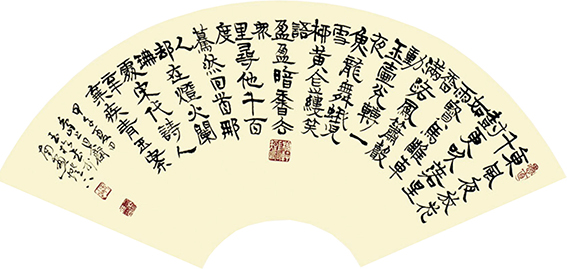 東風夜放花
千
樹更吹落星
如
雨寶馬雕車
香
滿路鳳簫聲
動
玉壺光轉一
夜
魚龍舞蛾兒
雪
柳黃金縷笑
語
盈盈暗香去
眾
里尋他千百
度
驀然回首那
人
却在燈火闌
珊
處宋代詩人
辛
棄疾青玉案